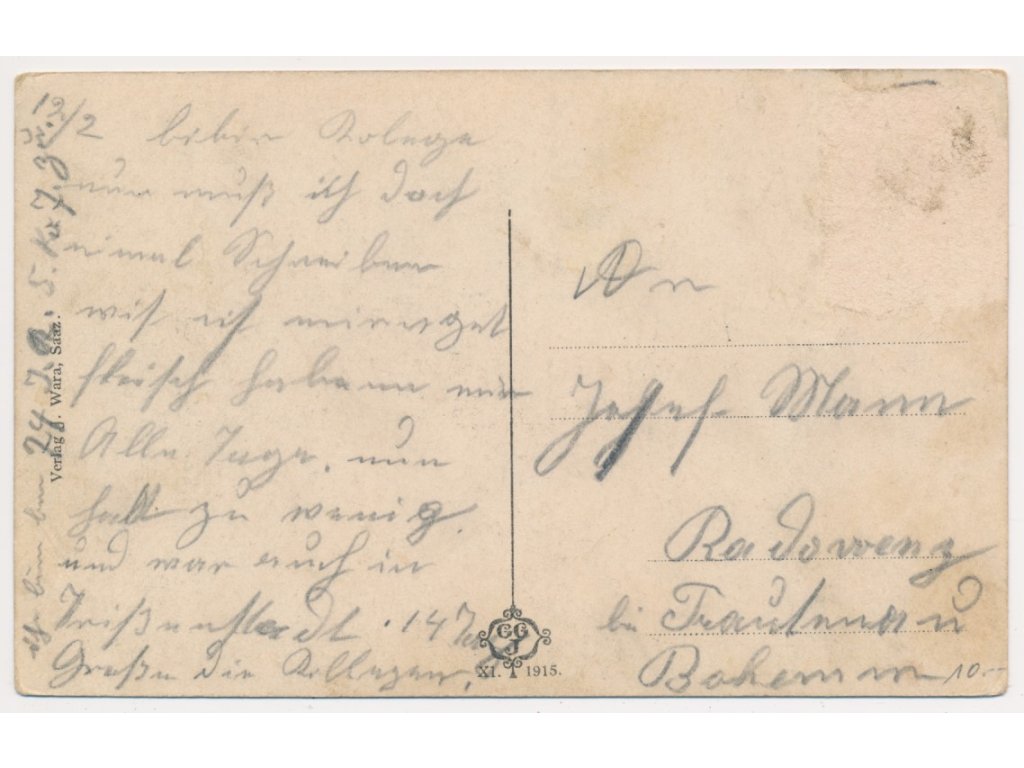 12/2 lieber Kolege
nun muß ich doch
einmal Schreiben
wis ich
fleisch haben
Alle Tage. nur
halt zu wenig.
und war auch in
14 Tage
Grüße die Kollegen.
ich bin bem 24 J. R. 5. K. 7. Zu.
Verlag J. Wara, Saaz.
GGJ
XI. 1915.
An
Josef Mann
Radowenz
bei Trautenau
Bohemm
10.-